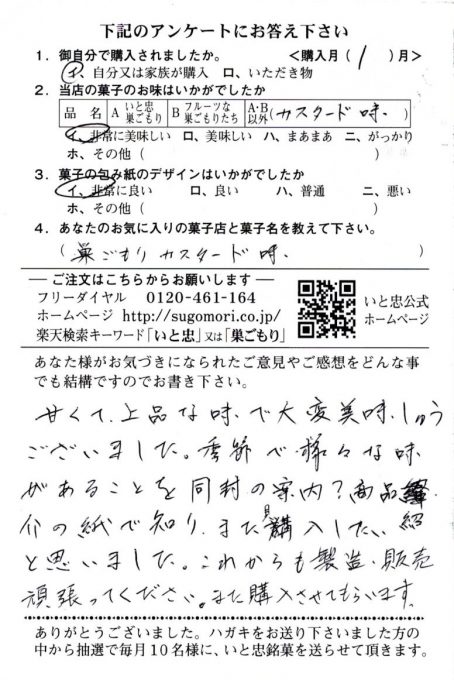 下記のアンケートにお答え下さい
1. 御自分で購入されましたか。 <購入月( 1 )月>
イ、自分又は家族が購入 ロ、いただき物
2. 当店の菓子のお味はいかがでしたか
品 名 A いと忠巣ごもり B フルーツな巣ごもりたち A・B以外 (カスタード味.
イ、非常に美味しい ロ、美味しい ハ、まあまあ ニ、がっかり
ホ、その他( )
3. 菓子の包み紙のデザインはいかがでしたか
イ、非常に良い ロ、良い ハ、普通 ニ、悪い
ホ、その他( )
4. あなたのお気に入りの菓子店と菓子名を教えて下さい。
( 巣ごもり カスタード味. )
― ご注文はこちらからお願いします ―
フリーダイヤル 0120-461-164
ホームページ http://sugomori.co.jp/
楽天検索キーワード「いと忠」又は「巣ごもり」
いと忠公式
ホームページ
あなた様がお気づきになられたご意見やご感想をどんな事
でも結構ですのでお書き下さい。
甘くて、上品な味で大変美味しゅう
ございました。季節で様々な味
があることを同封の案内?商品紹
介の紙で知り、また購入したい
と思いました。これからも製造・販売
頑張ってください。また購入させてもらいます。
ありがとうございました。ハガキをお送り下さいました方の
中から抽選で毎月10名様に、いと忠銘菓を送らせて頂きます。